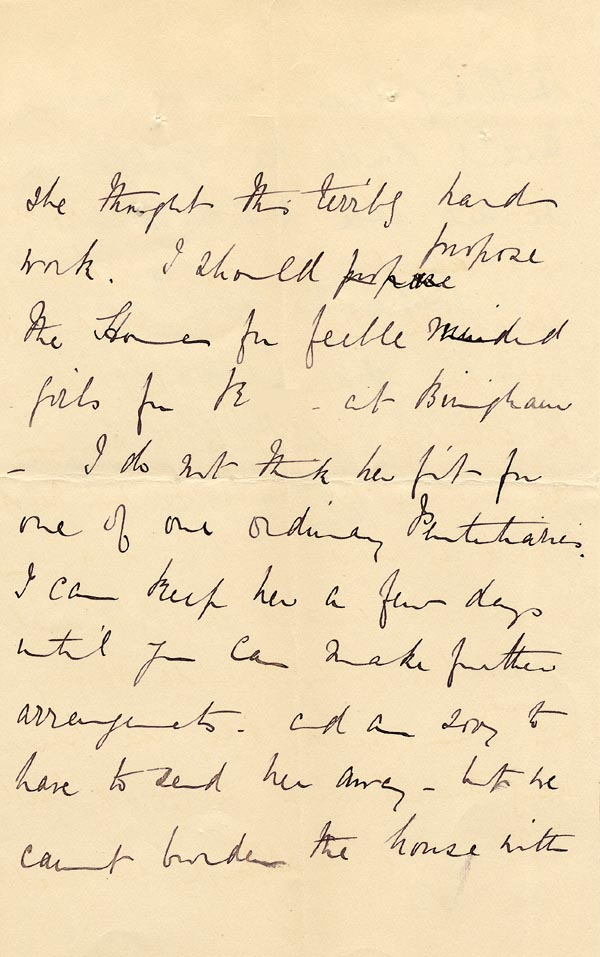 she thought this terribly hard
work. I should propose propose
the Home for feeble minded
girls for E - at Bingham
- I do not think her fit for
one of our ordinary Penitentiaries.
I can keep her a few days
until you can make further
arrangements - and am sorry to
have to send her away - but we
cannot burden the house with